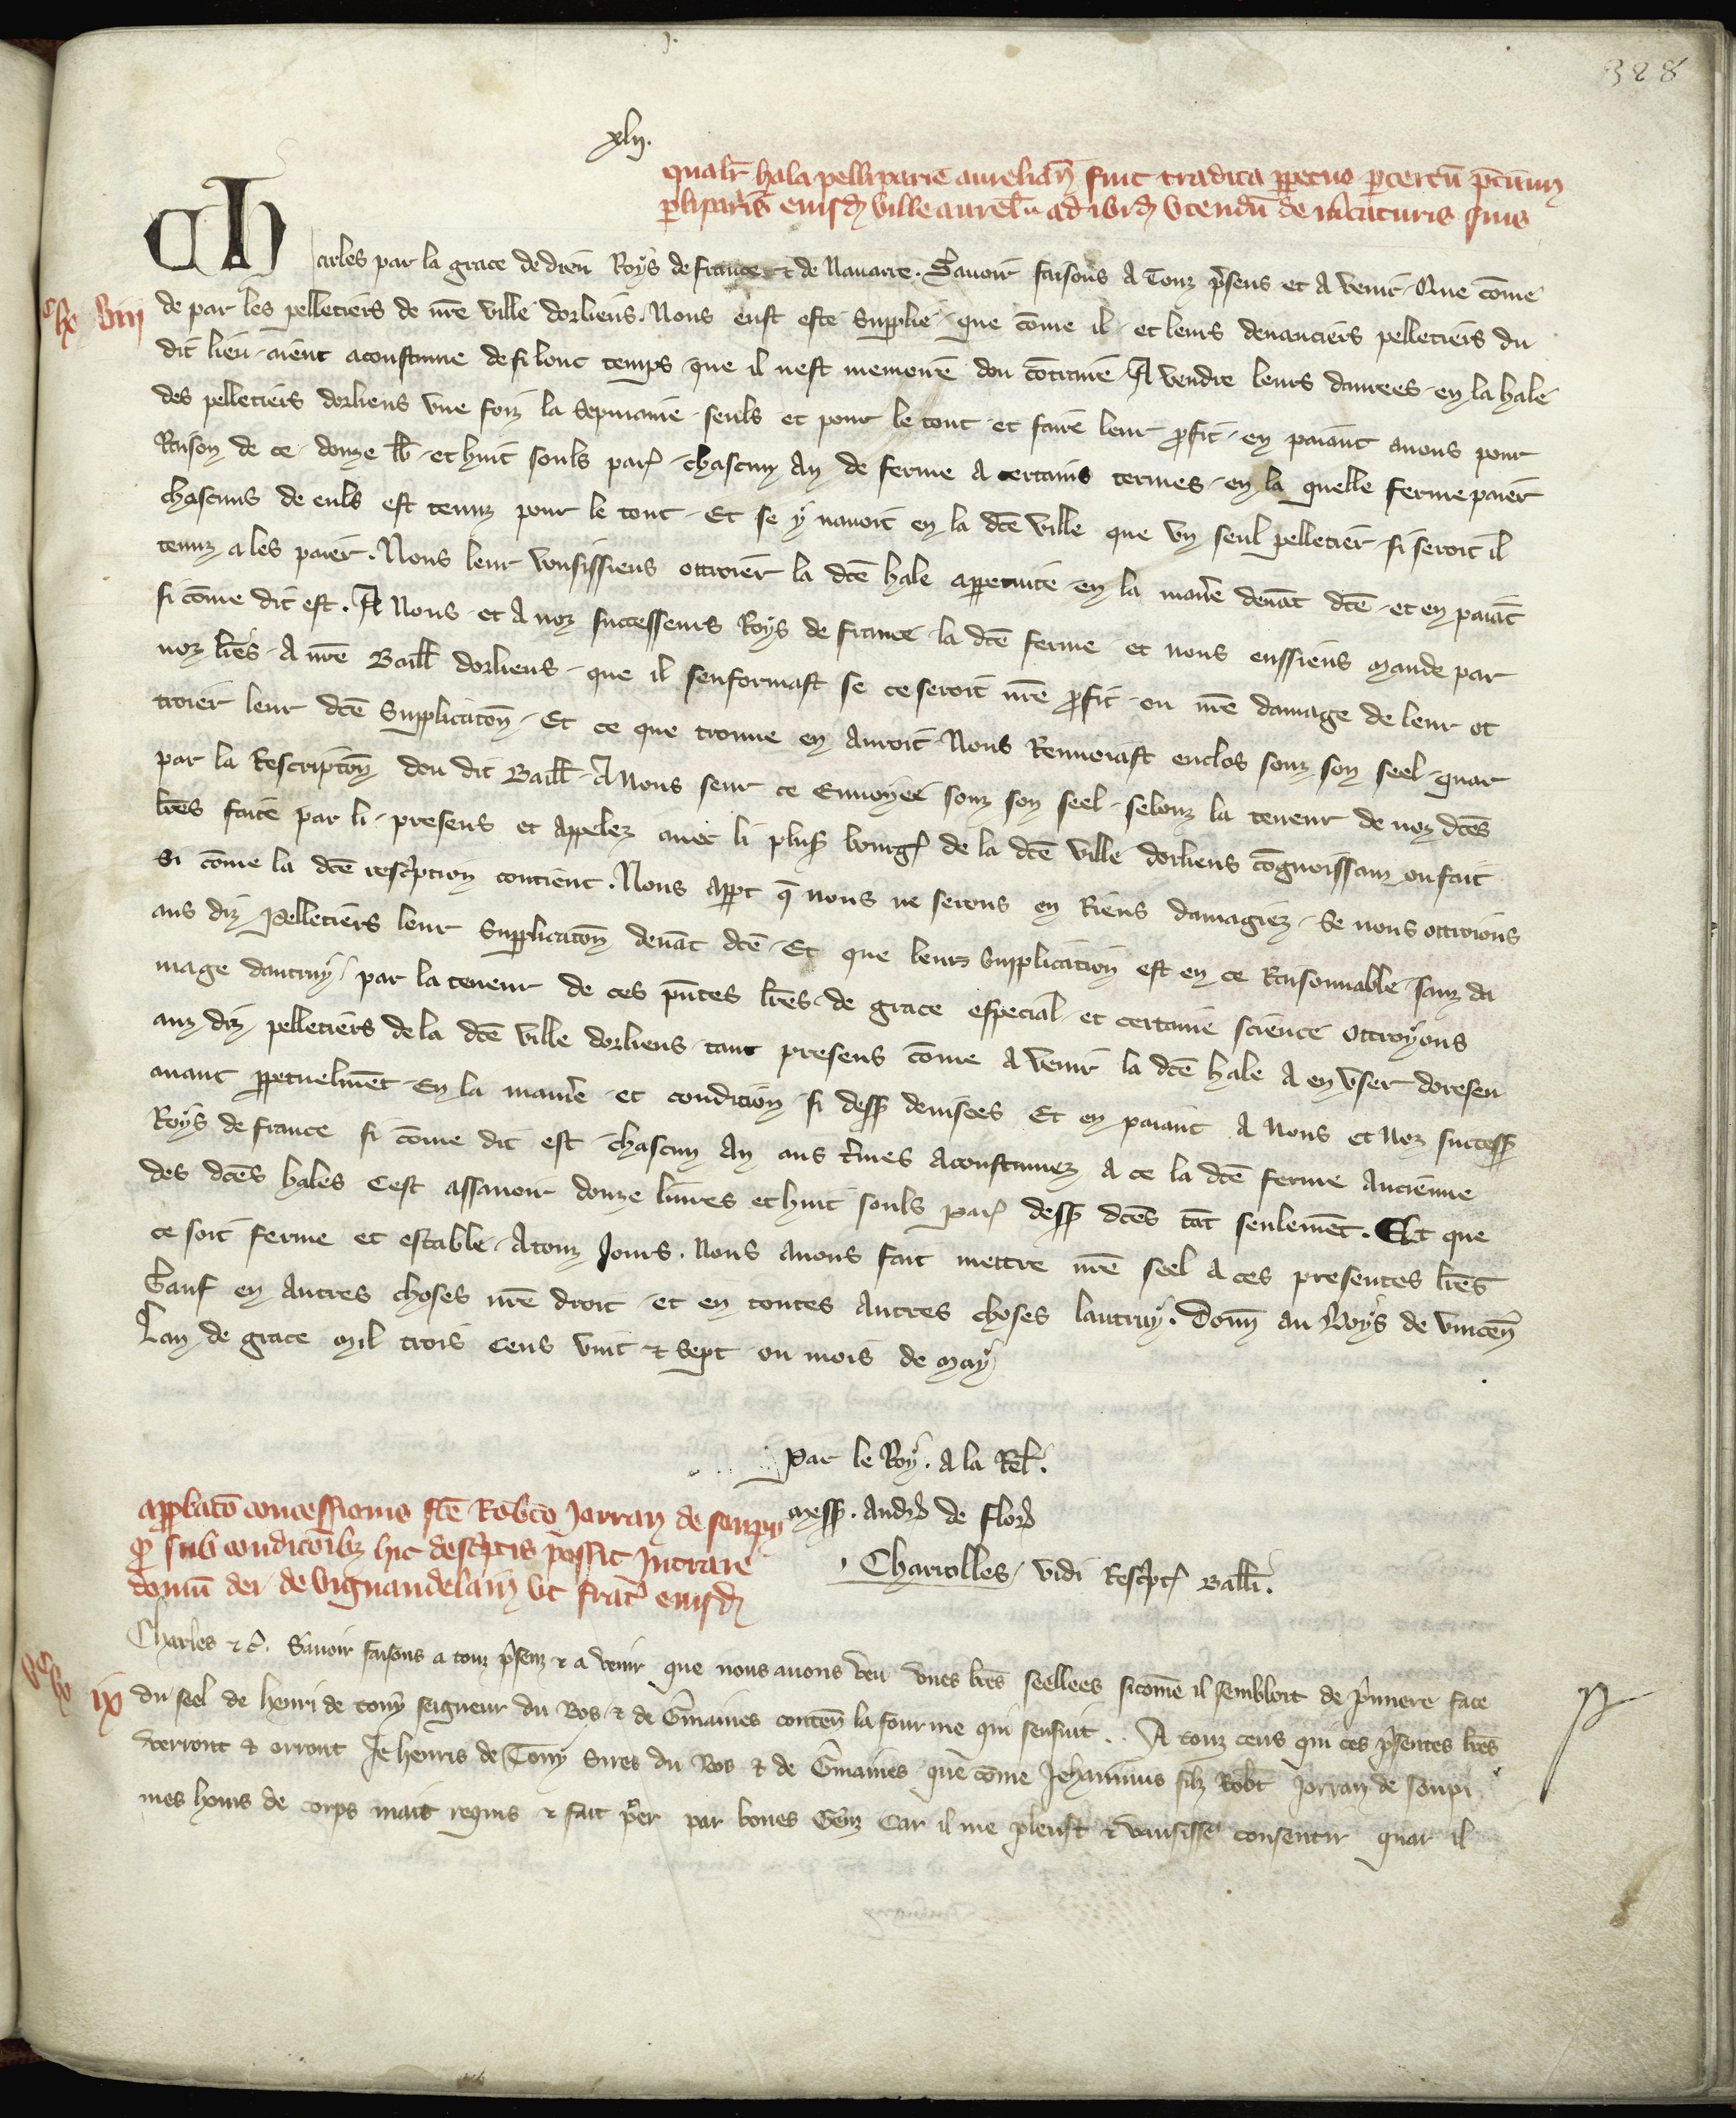 328
xlij.
qualr̄ hala pelliparie aurelian̄ fuit tradita ꝑpetuo ꝑ certū p̄ciū
pelipariis eiusdē ville aurel̄ ad ibidē vtendū de m̄caturis suis
Charles par la grace de dieu Roys de france et de Nauarre. Sauoir faisons A Touz p̄sens et A venir. Que cōme
de par les pelletiers de nr̄e ville dorliens. Nous eust este supplie. que cōme il et leurs deuanciers pelletiers du
dit lieu aient acoustume de si lonc temps que il nest memoire dou cōtraire A vendre leurs danrees en la hale
des pelletiers dorliens vne foiz la Sepmaine seuls et pour le tout et faire leur ꝓfit en paiant anous pour
Raison de ce douze lb̄ et huit souls par̄ chascun An de ferme A certains termes en la quelle ferme paier
chascuns de euls est tenuz pour le tout. Et se y nauoit en la dc̄e ville que vn seul pelletier si seroit il
tenuz a les paier. Nous leur vousissiens ottroier la dc̄e hale appetuite en la man̄e deuāt dc̄e et en paiāt
si cōme dit est. A Nous et A noz successeurs Roys de france la dc̄e ferme et nous eussiens mande par
noz lr̄es A nr̄e Baill̄ dorliens que il senformast se ce seroit nr̄e ꝓfit ou nr̄e damage de leur ot
troier leur dc̄e supplicatōn. Et ce que trouue en Auroit Nous Renuoiast enclos souz son seel. quar
par la Rescriptōn dou dit Baill̄ A Nous seur ce Enuoyee souz son seel selonz la teneur de noz dc̄es
lr̄es faite par li presens et appelez auec li plus̄ bourḡ de la dc̄e ville dorliens cōgnoissanz ou fait
Si cōme la dc̄e resc̄ption contient. Nous appt q̄ nous ne serons en Riens damagiez. Se nous ottroions
aus diz Pelletiers leur supplicatōn deuāt dc̄e. Et que leurs supplication est en ce Raisonnable sanz da
mage dautruy par la teneur de ces pn̄tes lr̄es de grace especial et certaine science ottroyons
auz diz pelletiers de la dc̄e ville dorliens tant presens cōme A venir la dc̄e hale A en vser doresen
auant ꝑpetuelmēt En la maniēe et condicion si dess̄ deuisees Et en paiant A Nous et Noz success̄
Roys de france si cōme dit est chascun An aus t̄mes Acoustumez A ce la dc̄e ferme Ancienne
des dc̄es hales Cest assauoir douze liures et huit souls par̄ dess̄ dc̄es tāt seulemēt. Et que
ce soit ferme et estable Atouz Jours. Nous auons fait mettre nr̄e seel A ces presentes lr̄es
Sauf en Autres choses nr̄e droit et en toutes Autres choses lautruy. Donn̄ au Boys de vincen̄
Lan de grace Mil trois Cens vint et Sept ou mois de may
Par le Roy. A la Rel̄.
Mess̄. Andr̄ de flor̄
Charrolles vidi Resc̄pt̄ Ball̄i.
approbatō concessionis fc̄e Robt̄o Jorran de soupy
ꝙ sub condicōibz hic desc̄ptis possit Intrare
domū dei de vign̄
ut frat̄ eiusdē
Charles et c̄. Sauoir faisons a touz p̄senz et a venir que nous auons veu vnes lr̄es seellees sicōme il sembloit de p̄miere face
du seel de henri de tony seigneur du Bos et de Ḡmaines conten̄ la fourme qui sensuit.. A touz ceus qui ces p̄sentes lr̄es
verront et orront Je henris de Tony Sires du Bos et de Ḡmaines que cōme Jehanninus filz Robt̄ Jorran de soupi
mes homs de corps mait requis et fait p̄er par bones Genz Car il me pleust et vausisse consentir quar il
viij
ix